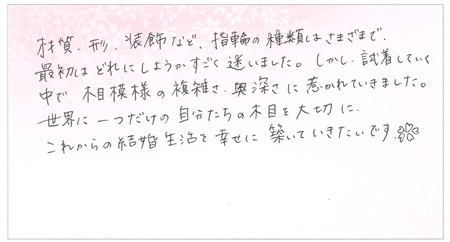 材質、形、装飾など、指輪の種類はさまざまで、
最初はどれにしようかすごく迷いました。しかし、試着していく
中で、木目模様の複雑さ、奥深さに惹かれていきました。
世界に一つだけの自分たちの木目を大切に、
これからの結婚生活を幸せに築いていきたいです